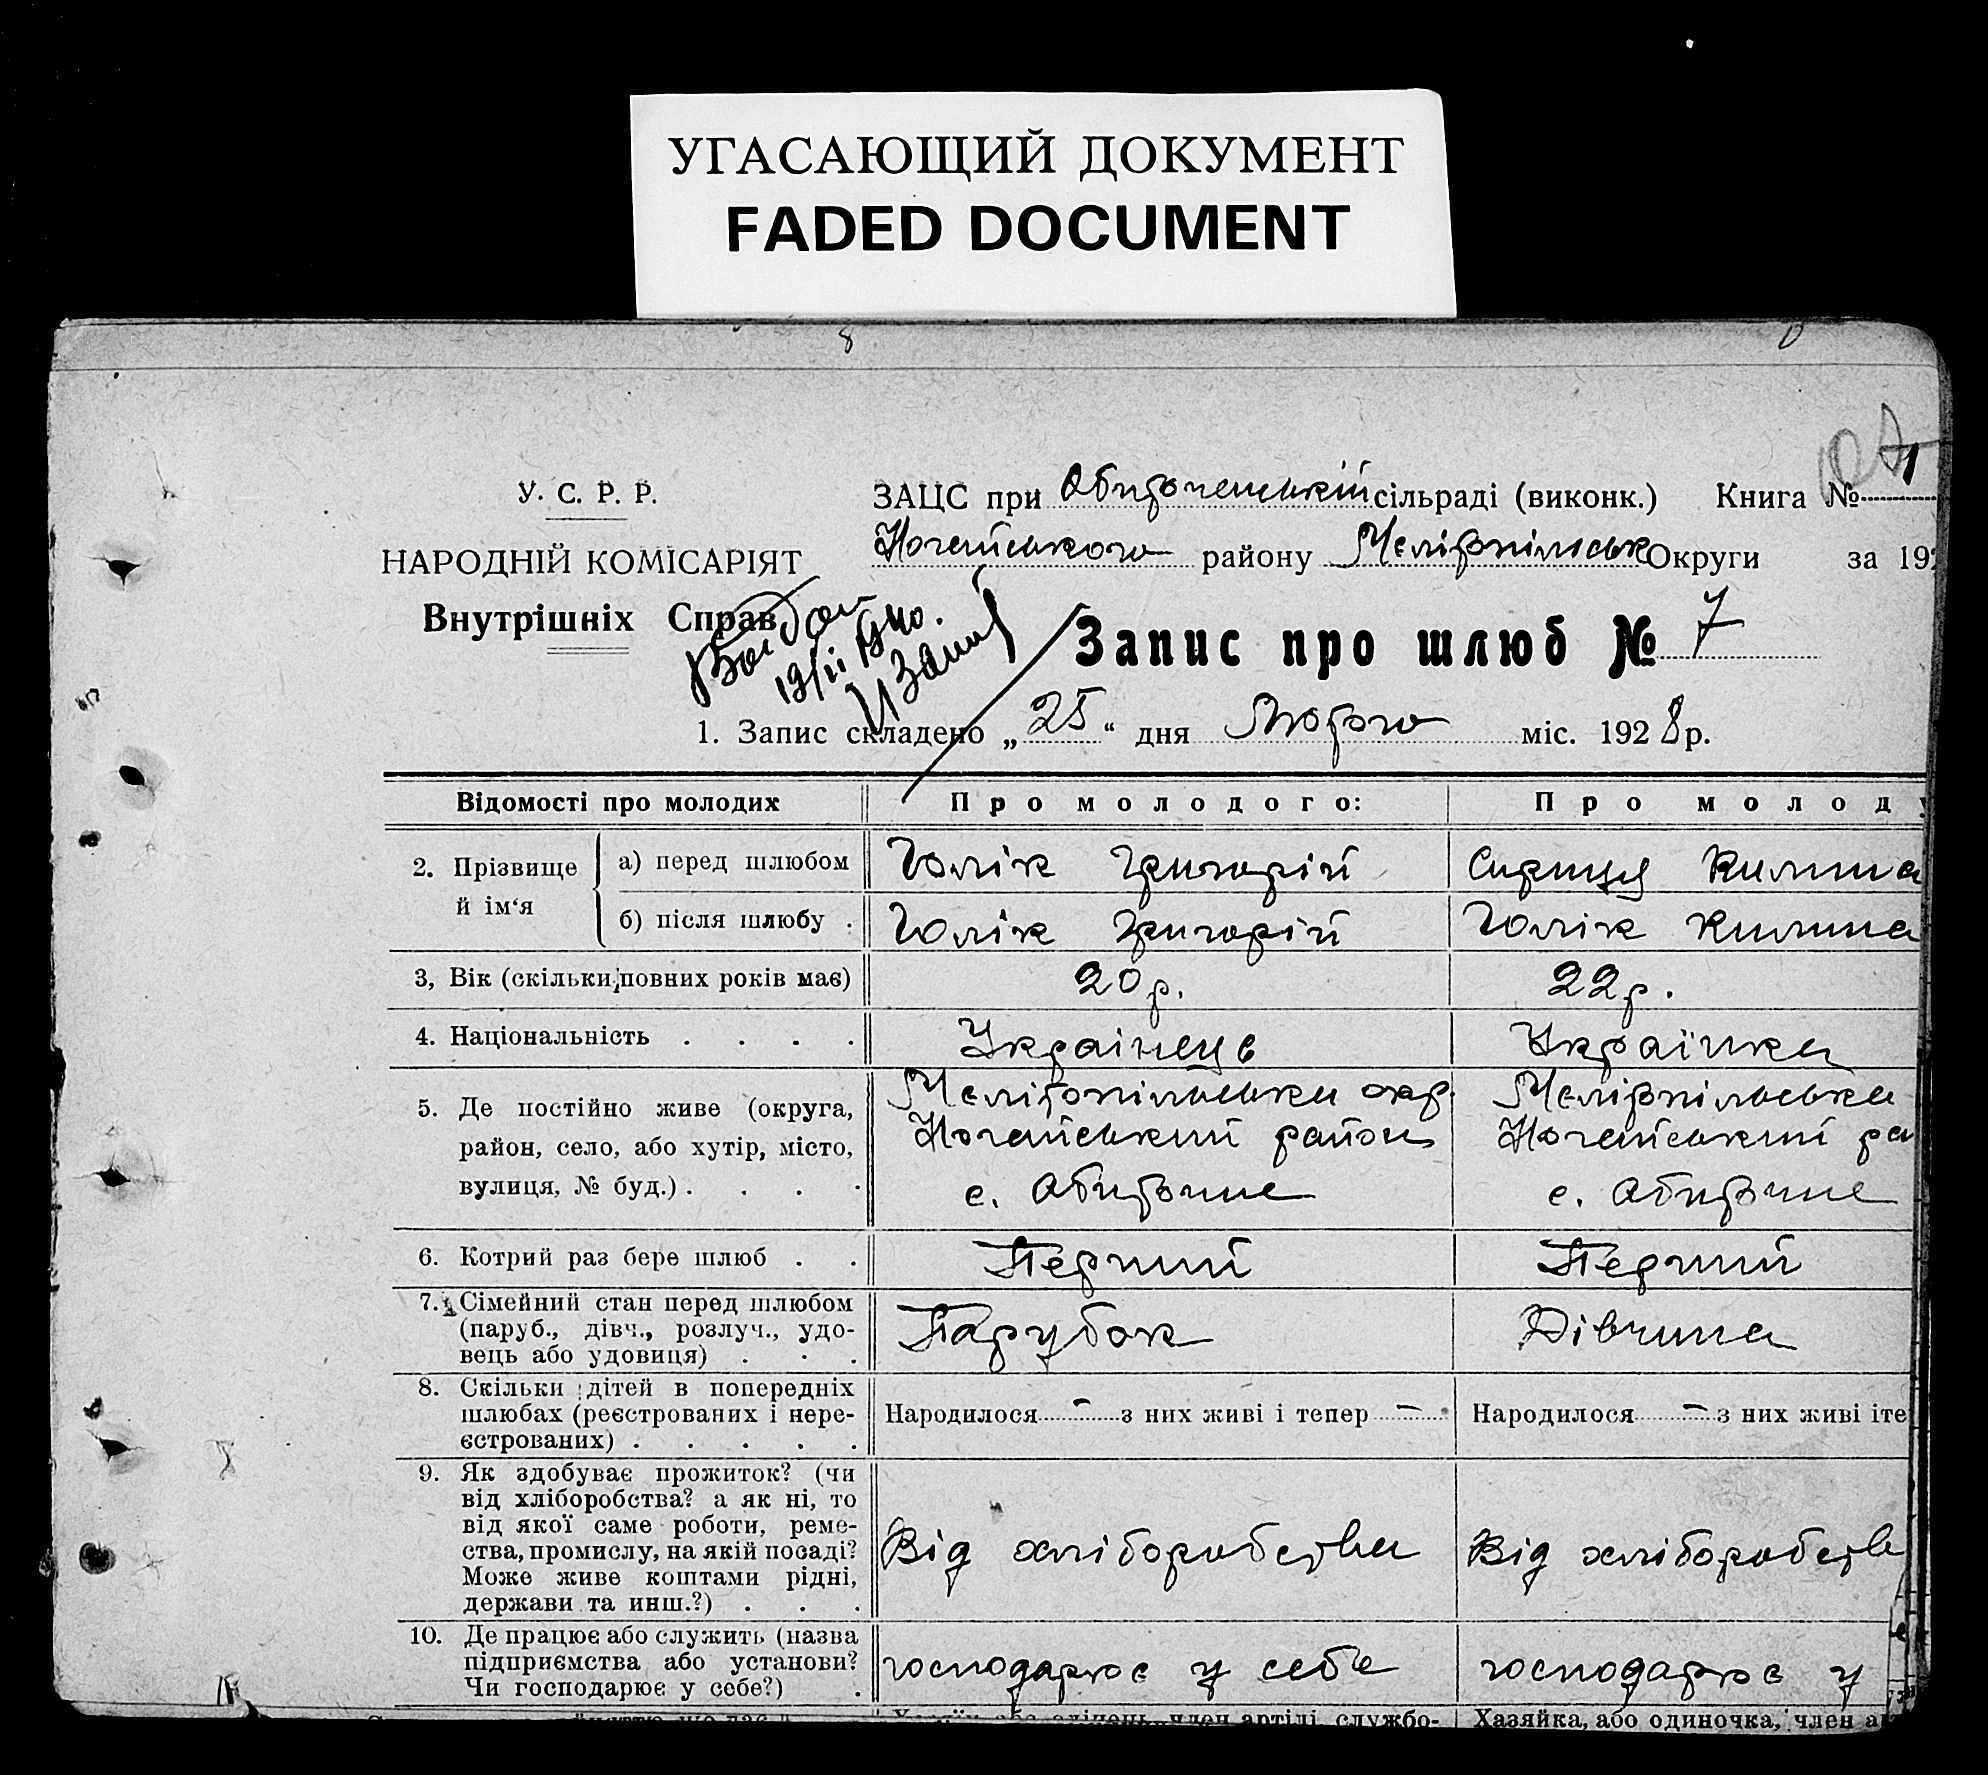 УГАСАЮЩИЙ ДОКУМЕНТ
FADED DOCUMENT
У. С. Р. Р.
НАРОДНІЙ КОМІСАРІЯТ
Внутрішніх Справ
ЗАЦС при Обиточенській сільраді (виконк.) Книга № 1
Ногайського району Меліто­пільськ Округи за 192
19/II
Запис про шлюб № 7
1. Запис складено „25“ дня Лютого міс. 1928 р.
Відомості про молодих
Про молодого:
Про молоду
2. Прізвище й ім‘я
а) перед шлюбом
Голік Григорій
Сириця Килина
б) після шлюбу .
Голік Григорій
Голік Килина
3, Вік (скільки повних років має)
20 р.
22 р.
4. Національність . . . .
Українець
Українка
5. Де постійно живе (округа,
район, село, або хутір, місто,
вулиця, № буд.) . . . .
Мелітопільська окр.
Ногайський район
с. Обиточне
Мелітпільська
Ногайський ра
с. Обиточне
6. Котрий раз бере шлюб . .
Перший
Перший
7. Сімейний стан перед шлюбом
(паруб., дівч., розлуч., удо-
вець або удовиця) . . .
Парубок
Дівчина
8. Скільки дітей в попередніх
шлюбах (реєстрованих і нере-
єстрованих) . . . . .
Народилося — з них живі і тепер —
Народилося — з них живі і те
9. Як здобуває прожиток? (чи
від хліборобства? а як ні, то
від якої саме роботи, реме-
ства, промислу, на якій посаді?
Може живе коштами рідні,
держави та инш.?) . . .
Від хліборобства
Від хліборобств
10. Де працює або служить (назва
підприємства або установи?
Чи господарює у себе?) .
господарює у себе
господарює у
член артілі, службо-
Хазяйка, або одиночка, член а